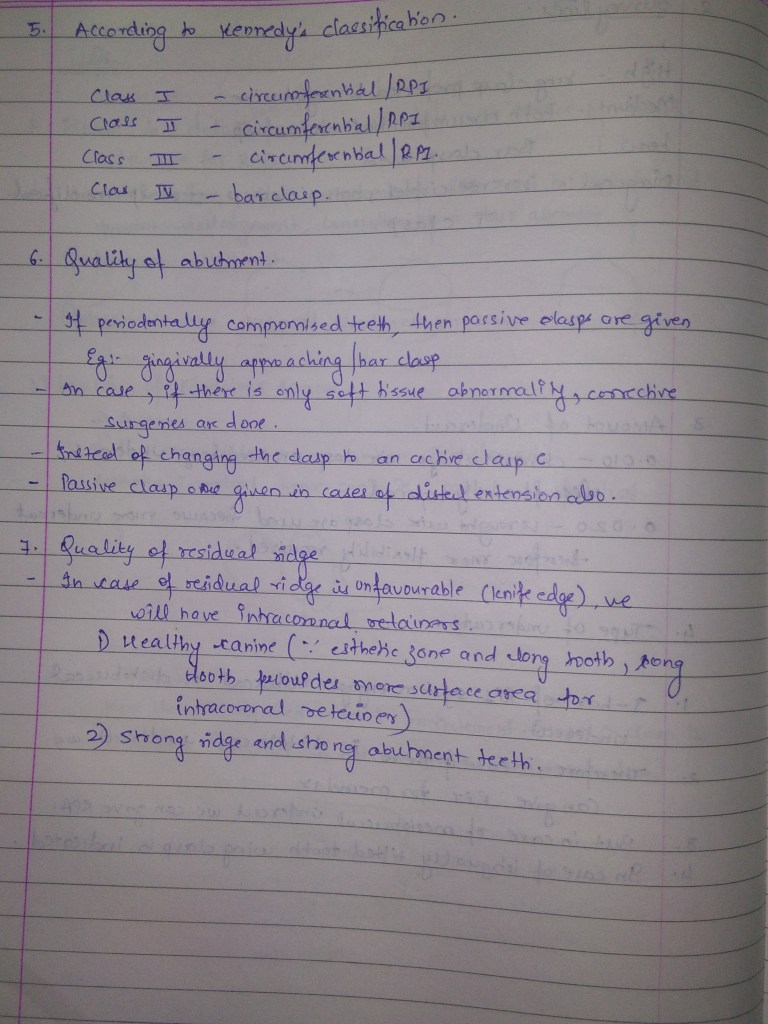 5. According to Kennedy's classification.
Class I - circumferential / RPI
Class II - circumferential / RPI
Class III - circumferential / RPI.
Clas IV - bar clasp.
6. Quality of abutment.
- If periodontally compromised teeth, then passive clasps are given
Eg:- gingivally approaching / bar clasp
- In case, if there is only soft tissue abnormality, corrective
surgeries are done.
- Instead of changing the clasp to an active clasp c
- Passive clasp are given in cases of distal extension also.
7. Quality of residual ridge
- In case of residual ridge is unfavourable (knife edge), we
will have intracoronal retainers.
1) Healthy canine (∵ esthetic zone and long tooth, long
tooth provides more surface area for
intracoronal retainer)
2) strong ridge and strong abutment teeth.